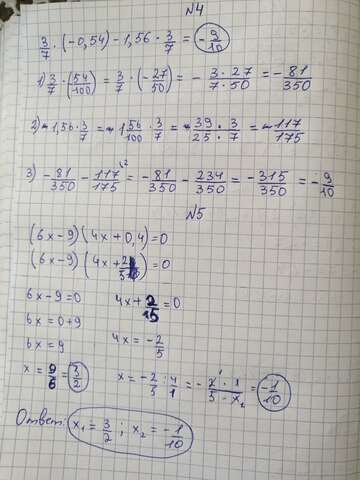 №4
3/7 · (-0,54) - 1,56 · 3/7 = -9/10
1) 3/7 · (54/100) = 3/7 · (-27/50) = - 3·27/7·50 = -81/350
2) -1,56 · 3/7 = -1 56/100 · 3/7 = -39/25 · 3/7 = -117/175
3) -81/350 - 117/175 ˡ² = -81/350 - 234/350 = -315/350 = -9/10
№5
(6x-9)(4x+0,4)=0
(6x-9)(4x+2/5)=0
6x-9=0 4x+2/5=0
6x=0+9
6x=9 4x=-2/5
x=9/6=3/2 x=-2/5 : 4/1 = - 2·1/5· = -1/10
Ответ: x₁=3/2; x₂=-1/10